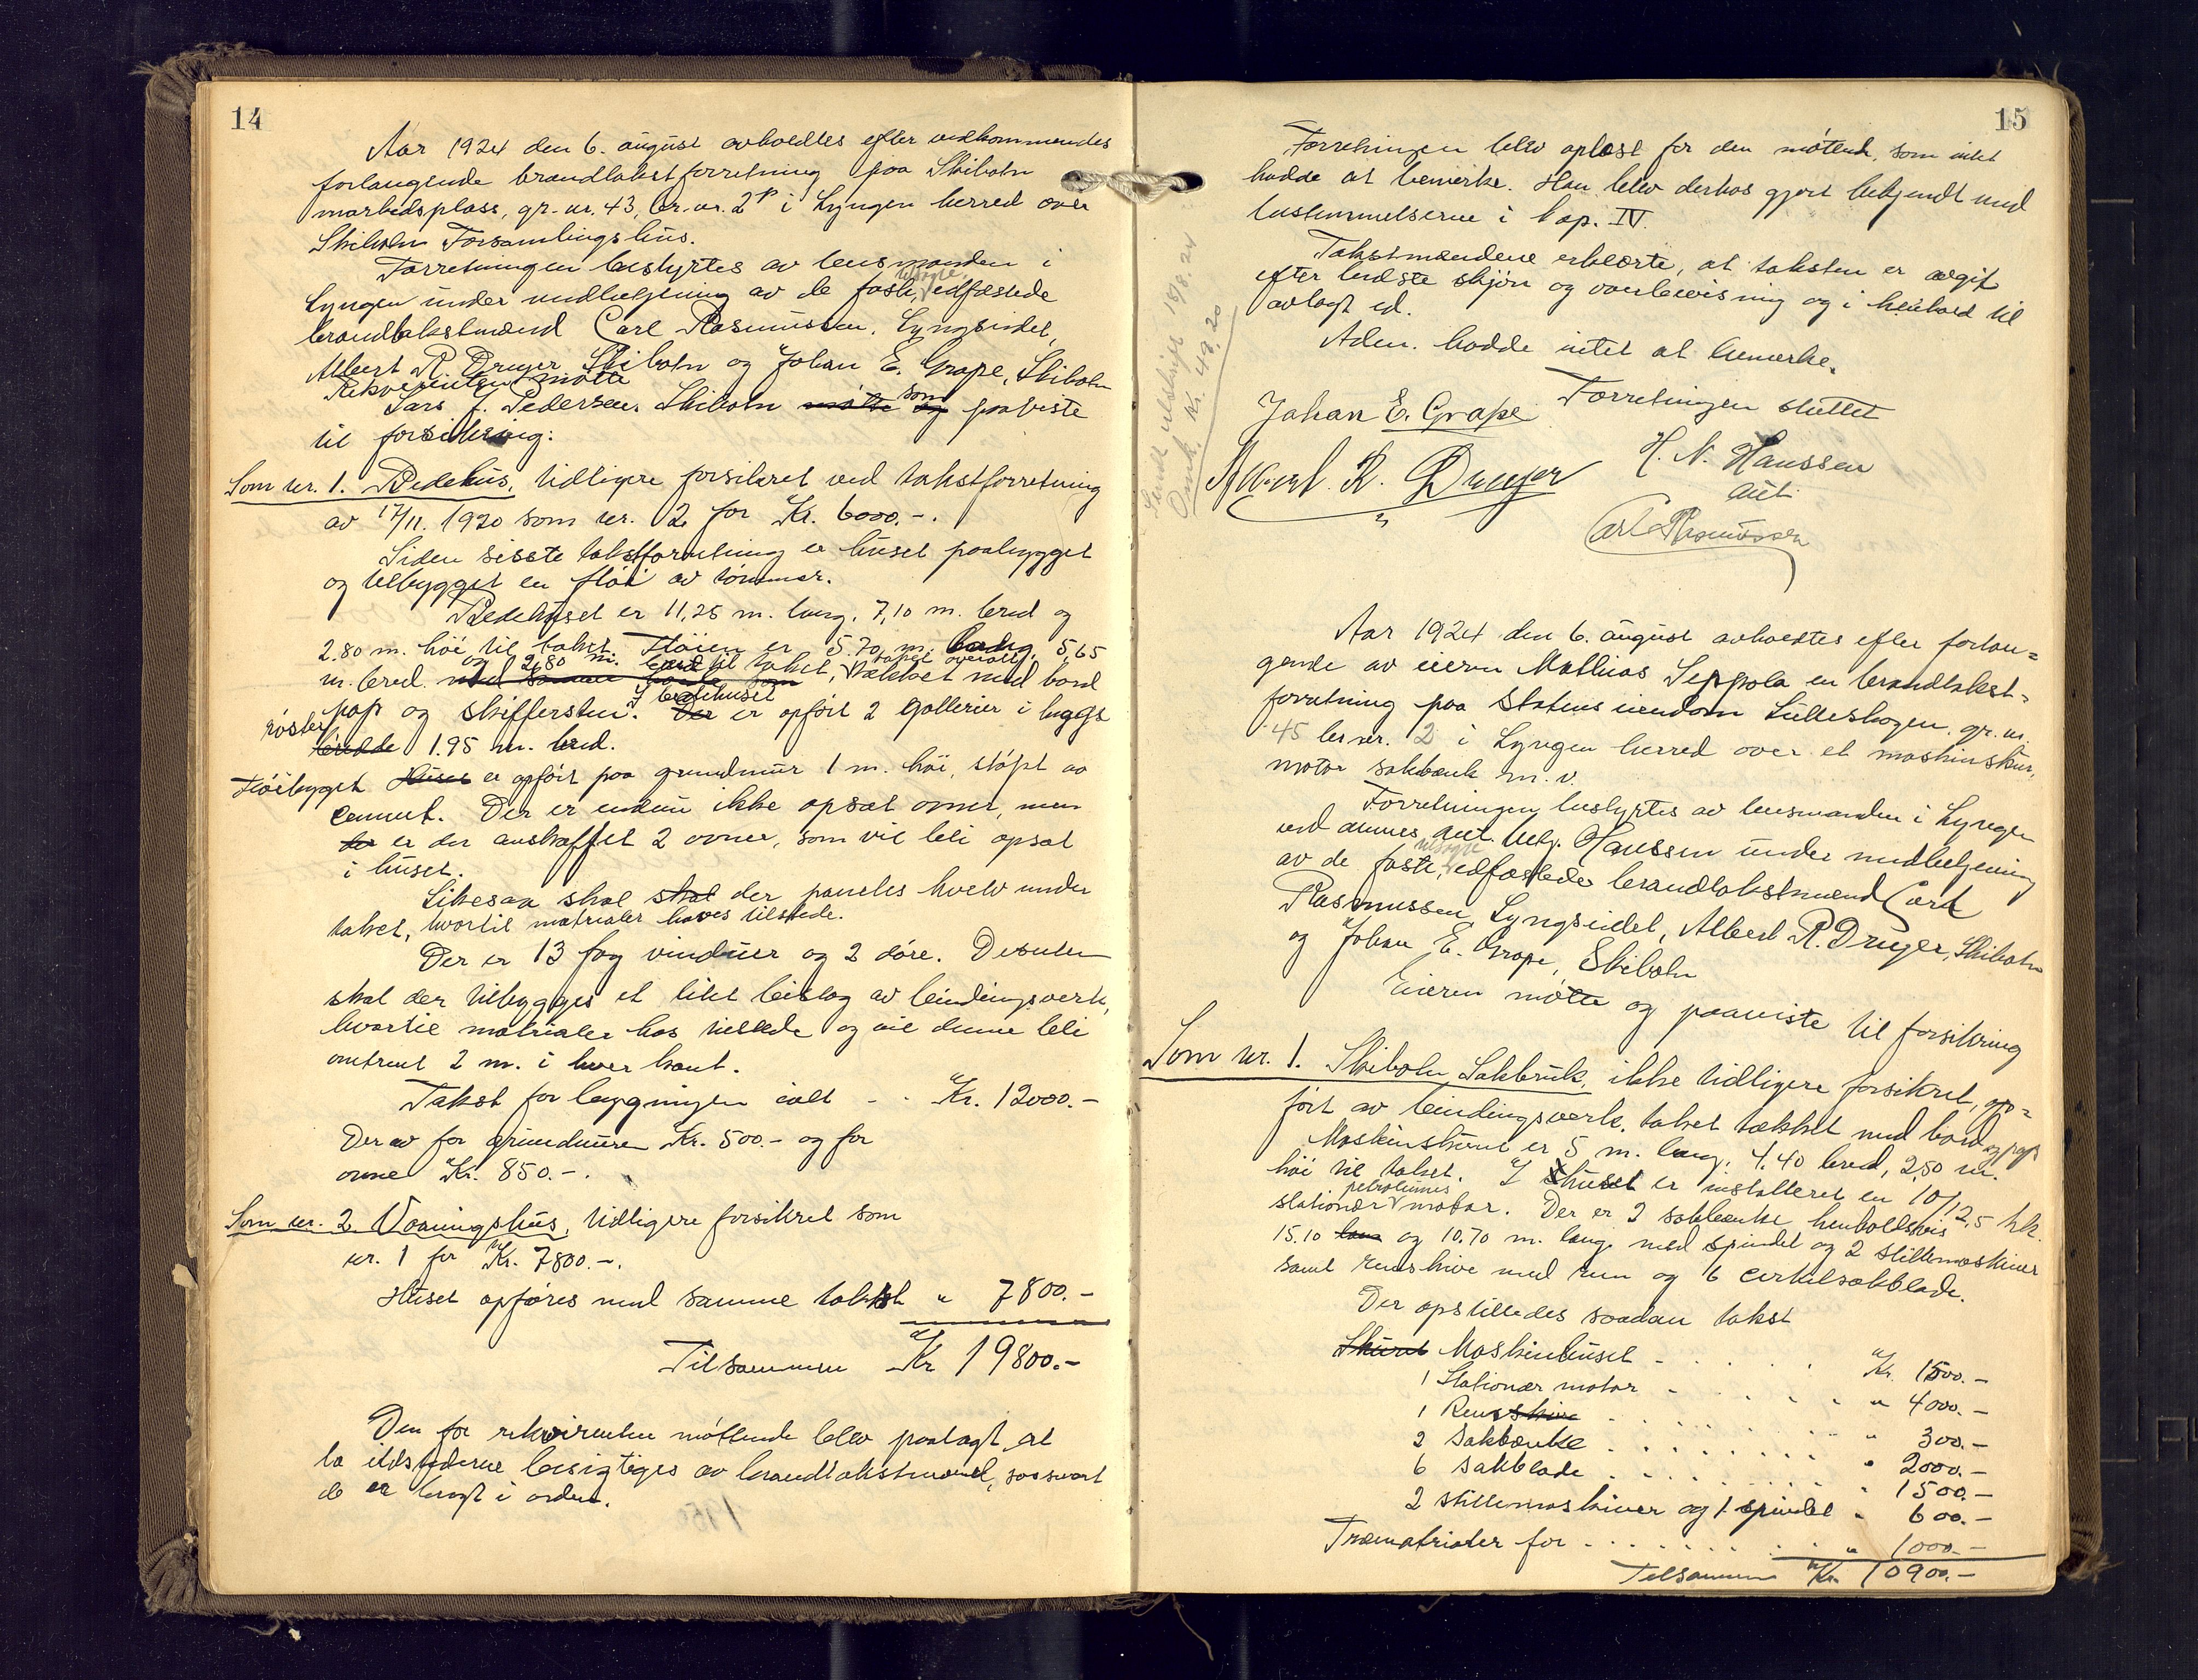 14
Aar 1924 den 6. august avholdtes efter vedkommendes
forlangende brandtakstforretning paa Skibotn
markedsplass, gr. nr. 43, br. nr. 2 i Lyngen herred over
Skibotn Forsamlingshus.
Forretningen bestyrtes av lensmanden i
Lyngen under medbetjening av de faste, edfæstede
brandtakstmænd Carl Rasmussen, Lyngseidet,
Albert R. Dreyer Skibotn og Johan E. Grape, Skibotn
Rekvirenten møtte
Lars J. Pedersen Skibotn møtte og som paaviste
til forsikring:
Som nr. 1. Bedehus, tidligere forsikret ved takstforretning
av 17/11. 1920 som nr. 2 for Kr. 6000.-.
Siden sisste takstforretning er huset paabygget
og tilbygget en fløi av tømmer.
Bedehuset er 11,25 m. lang, 7,10 m. bred og
2.80 m. høi til taket. Fløien er 5.70 m. lang, 5,65
og 2,80 m. til taket, taket overalt
m. bred med samme høide som tækket med bord
I bedehuset
pap og skiffersten. Der er opført 2 gallerier i begge
røster
bredde 1.95 m. bred.
Fløibygget Huset er opført paa grundmur 1 m. høi, støpt av
cement. Der er endnu ikke opsat ovner, men
der er der anskaffet 2 ovner, som vil bli opsat
i huset.
Likesaa skal skal der paneles hvelv under
taket, hvortil matrialer haves tilstede.
Der er 13 fag vinduer og 2 døre. Desuten
skal der tilbygges et litet bislag av bindingsverk,
hvortil matrialer has tilstede og vil denne bli
omtrent 2 m. i hver kant.
Takst for bygningen ialt - - Kr. 12000.-
Derav for grundmuren Kr. 500.- og for
ovne Kr. 850.-.
Som nr. 2 Vaaningshus, tidligere forsikret som
nr. 1 for Kr. 7800.-.
Huset opføres med samme takst " 7800.-
Tilsammen Kr 19800.-
Den for rekvirenten møttende blev paalagt at
la ildstederne besigtiges av brandtakstmænd, saasnart
de er bragt i orden.
15
Forretningen blev oplæst for den møttende, som intet
hadde at bemerke. Han blev derhos gjort bekjendt med
bestemmelserne i kap. IV.
Takstmændene erklærte, at taksten er avgit
efter bedste skjøn og overbevisning og i henhold til
avlagt ed.
Adm. hadde intet at bemerke.
Forretningen sluttet
Johan E. Grape
H. N. Hanssen
aut.
Albert R. Dreyer
Carl Rasmussen
Sendt utskrift 18/8. 24
Omk. Kr. 49.20
Aar 1924 den 6. august avholdtes efter forlan=
gende av eieren Mathias Seppola en brandtakst=
forretning paa Statens eiendom Lulleskogen, gr. nr.
45 br nr. 2 i Lyngen herred over et maskinskur,
motor sakbænk m. v.
Forretningen bestyrtes av lensmanden i Lyngen
ved dennes aut. betj. Hanssen under medbetjening
av de faste, edfæstede brandtakstmænd Carl
Rasmussen, Lyngseidet, Albert R. Dreyer, Skibotn
og Johan E. Grape, Skibotn
Eieren møtte og paaviste til forsikring
Som nr. 1. Skibotn Sakbruk, ikke tidligere forsikret, op=
ført av bindingsverk, taket tækket med bord og pap
Maskinskuret er 5 m. lang, 4.40 bred, 2,50 m.
høi til taket. I huset er installeret en 10/12,5 hk.
petroliums
stationær motor. Der er 2 sakbænke henholdsvis
15.10 lang og 10.70 m. lang. med spindel og 2 stillemaskiner
samt remskive med rem og 6 cirkelsakblade.
Der opstilledes saadan takst
Skuret Maskinhuset - . . . . Kr. 1500.-
1 Stationær motor - . . . . " 4000.-
1 Remskive . . . . . " 300.-
2 sakbænke . . . . . " 2000.-
6 sakblade . . . . . " 1500.-
2 stillemaskiner og 1 spindel " 600.-
Træmatrialer for . . . . . " 1000.-
Tilsammen Kr. 10900.-